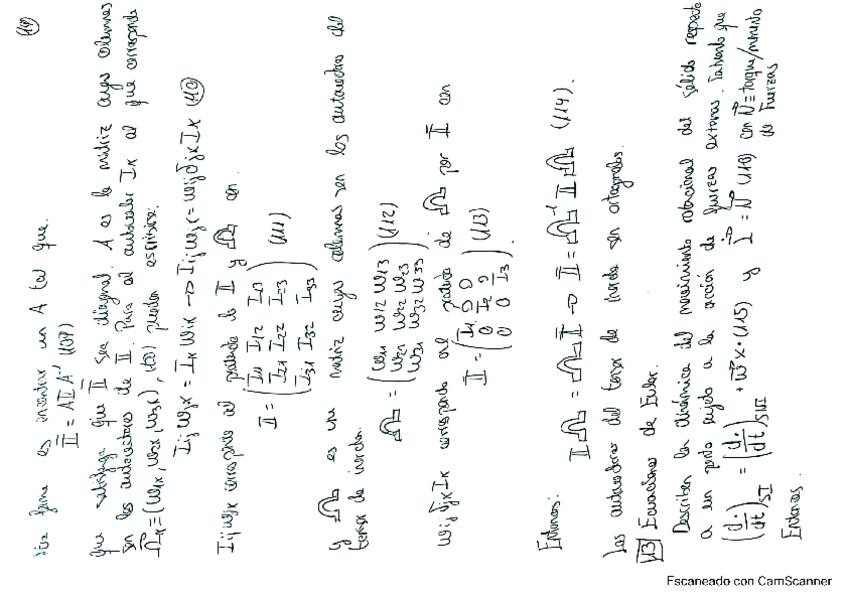 (19)
forma es encontrar un A tal que.
Ī = A I A⁻¹ (109)
que satisfaga que Ī sea diagonal. A es la matriz cuyas columnas
son los autovectores de I. Para el autovalor Iₖ al que corresponde
Ωₖ = (ω₁ₖ, ω₂ₖ, ω₃ₖ), puedo escribirse:
Iᵢⱼ ωⱼₖ = Iₖ ωᵢₖ → Iᵢⱼ ωⱼₖ = ωᵢⱼ δⱼₖ Iₖ (110)
Iᵢⱼ ωⱼₖ corresponde al producto de I y Ω con.
I = ( I₁₁ I₁₂ I₁₃
I₂₁ I₂₂ I₂₃
I₃₁ I₃₂ I₃₃ ) (111)
y Ω es una matriz cuyas columnas son los autovectores del
tensor de inercia.
Ω = ( ω₁₁ ω₁₂ ω₁₃
ω₂₁ ω₂₂ ω₂₃
ω₃₁ ω₃₂ ω₃₃ ) (112)
ωᵢⱼ δⱼₖ Iₖ corresponde al producto de Ω por Ī con
Ī = ( I₁ 0 0
0 I₂ 0
0 0 I₃ ) (113)
Entonces:
I Ω = Ω Ī → Ī = Ω⁻¹ I Ω (114).
Los autovectores del tensor de inercia son ortogonales.
13 Ecuaciones de Euler.
Describen la dinámica del movimiento rotacional del sólido respecto
a un punto sujeto a la acción de fuerzas externas. Tal que
(d·/dt)SI = (d·/dt)SNI + ω⃗ x · (115) y L⃗̇ = N⃗ (116) con N⃗ ≡ torque/momento
de Fuerzas
Entonces.
Escaneado con CamScanner